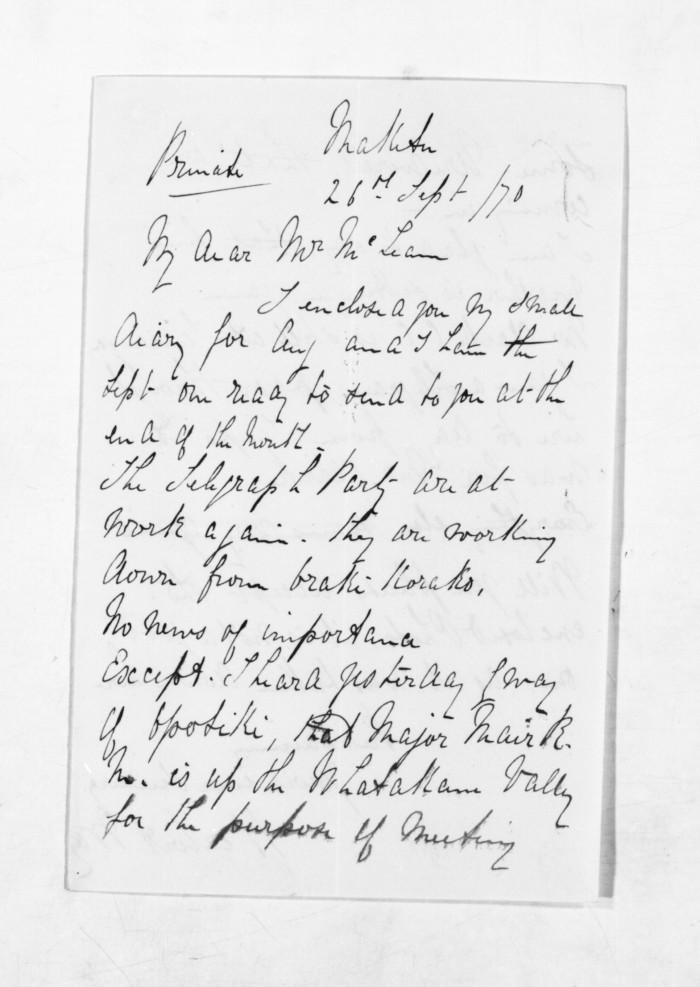 Maketu
Private
26th Sept /70
My dear Mr McLean
I enclosed you my small
diary for Aug and I have the
Sept one ready to send to you at the
end of the Month.
The Telegraph Party are at
work again. They are working
down from Korako.
No news of importance
Except. I heard yesterday by way
of Opotiki, that Major Mair R.
M. is up the Whakatane Valley
for the purpose of Meeting